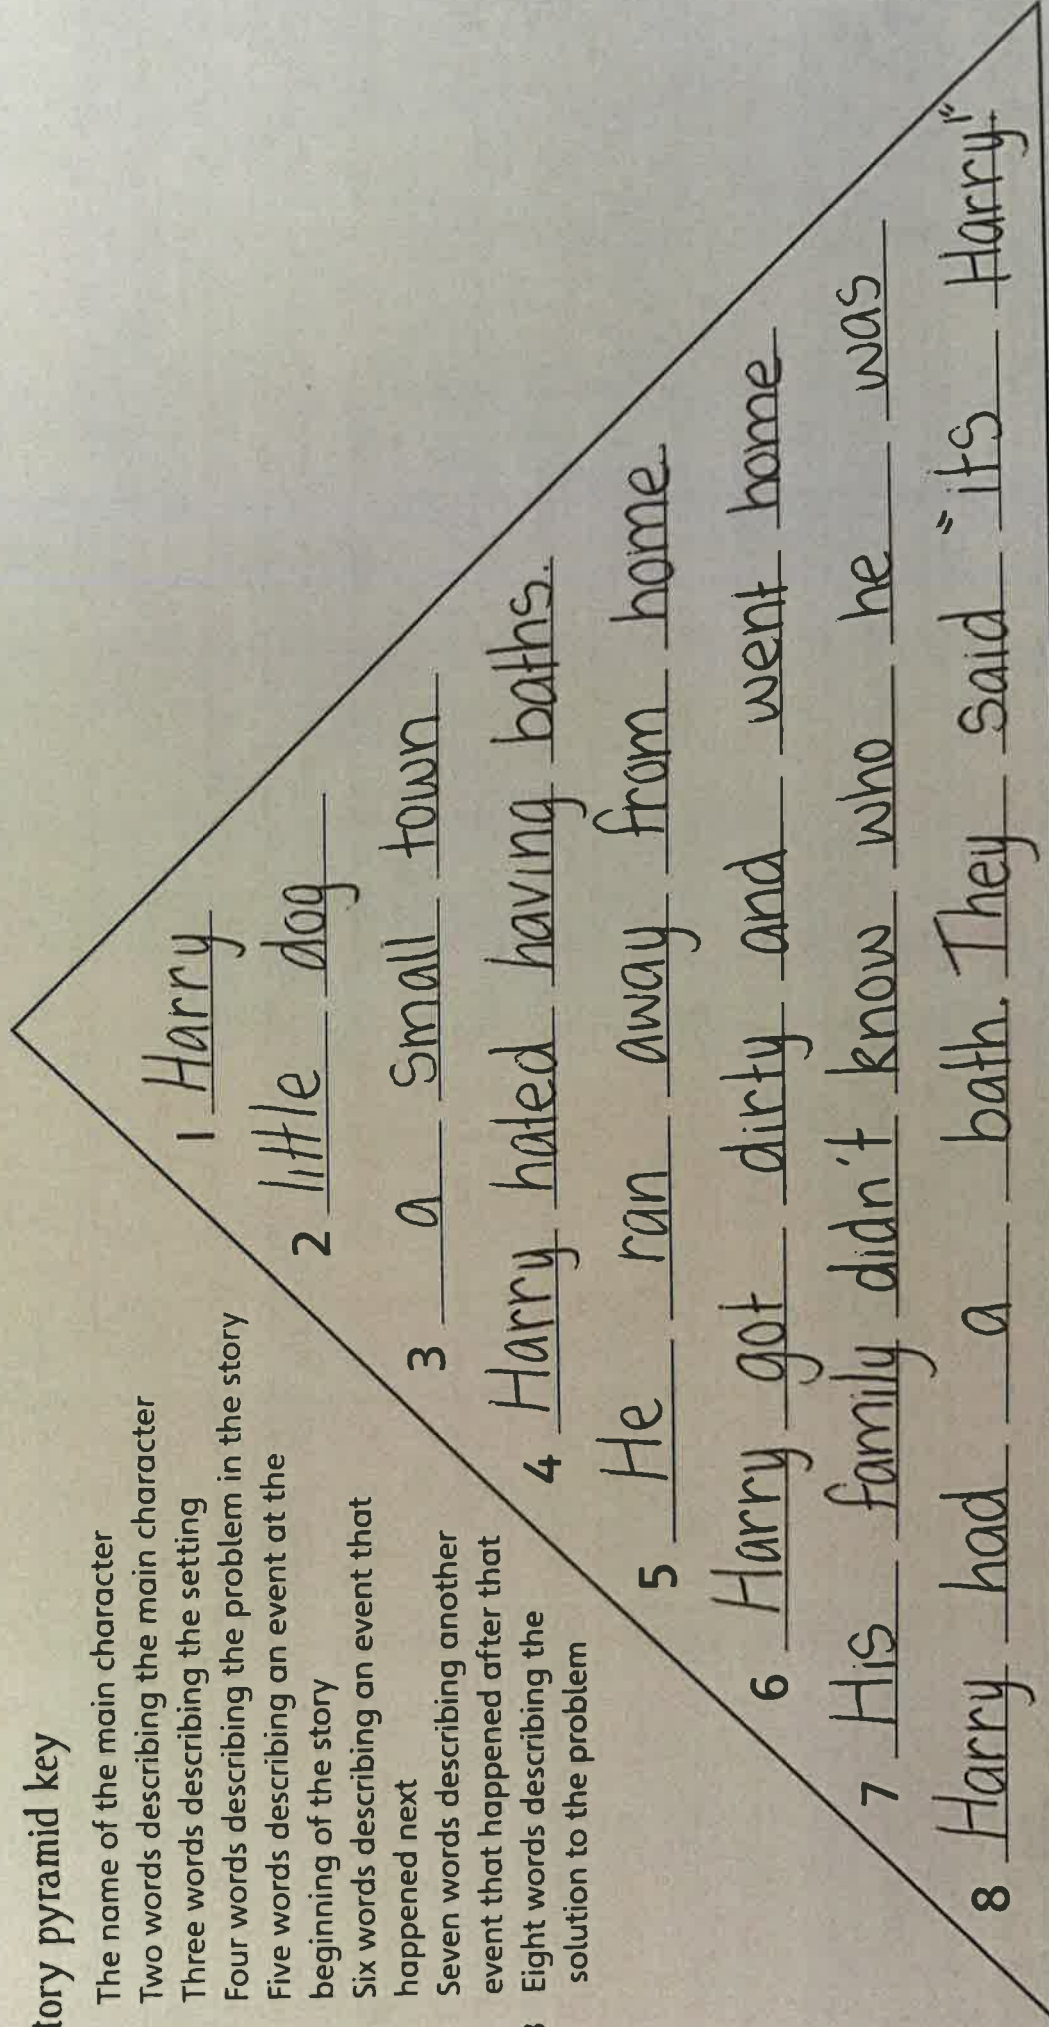 tory pyramid key
The name of the main character
Two words describing the main character
Three words describing the setting
Four words describing the problem in the story
Five words describing an event at the
beginning of the story
Six words describing an event that
happened next
Seven words describing another
event that happened after that
Eight words describing the
solution to the problem
1 Harry
2 little dog
3 a small town
4 Harry hated having baths.
5 He ran away from home.
6 Harry got dirty and went home
7 His family didn't know who he was
8 Harry had a bath. They said "its Harry!"